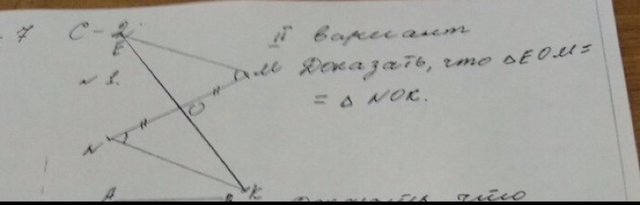 7 С-2. II вариант
E
№1. M Доказать, что △EOM=
O = △NOK.
N
K
A
что